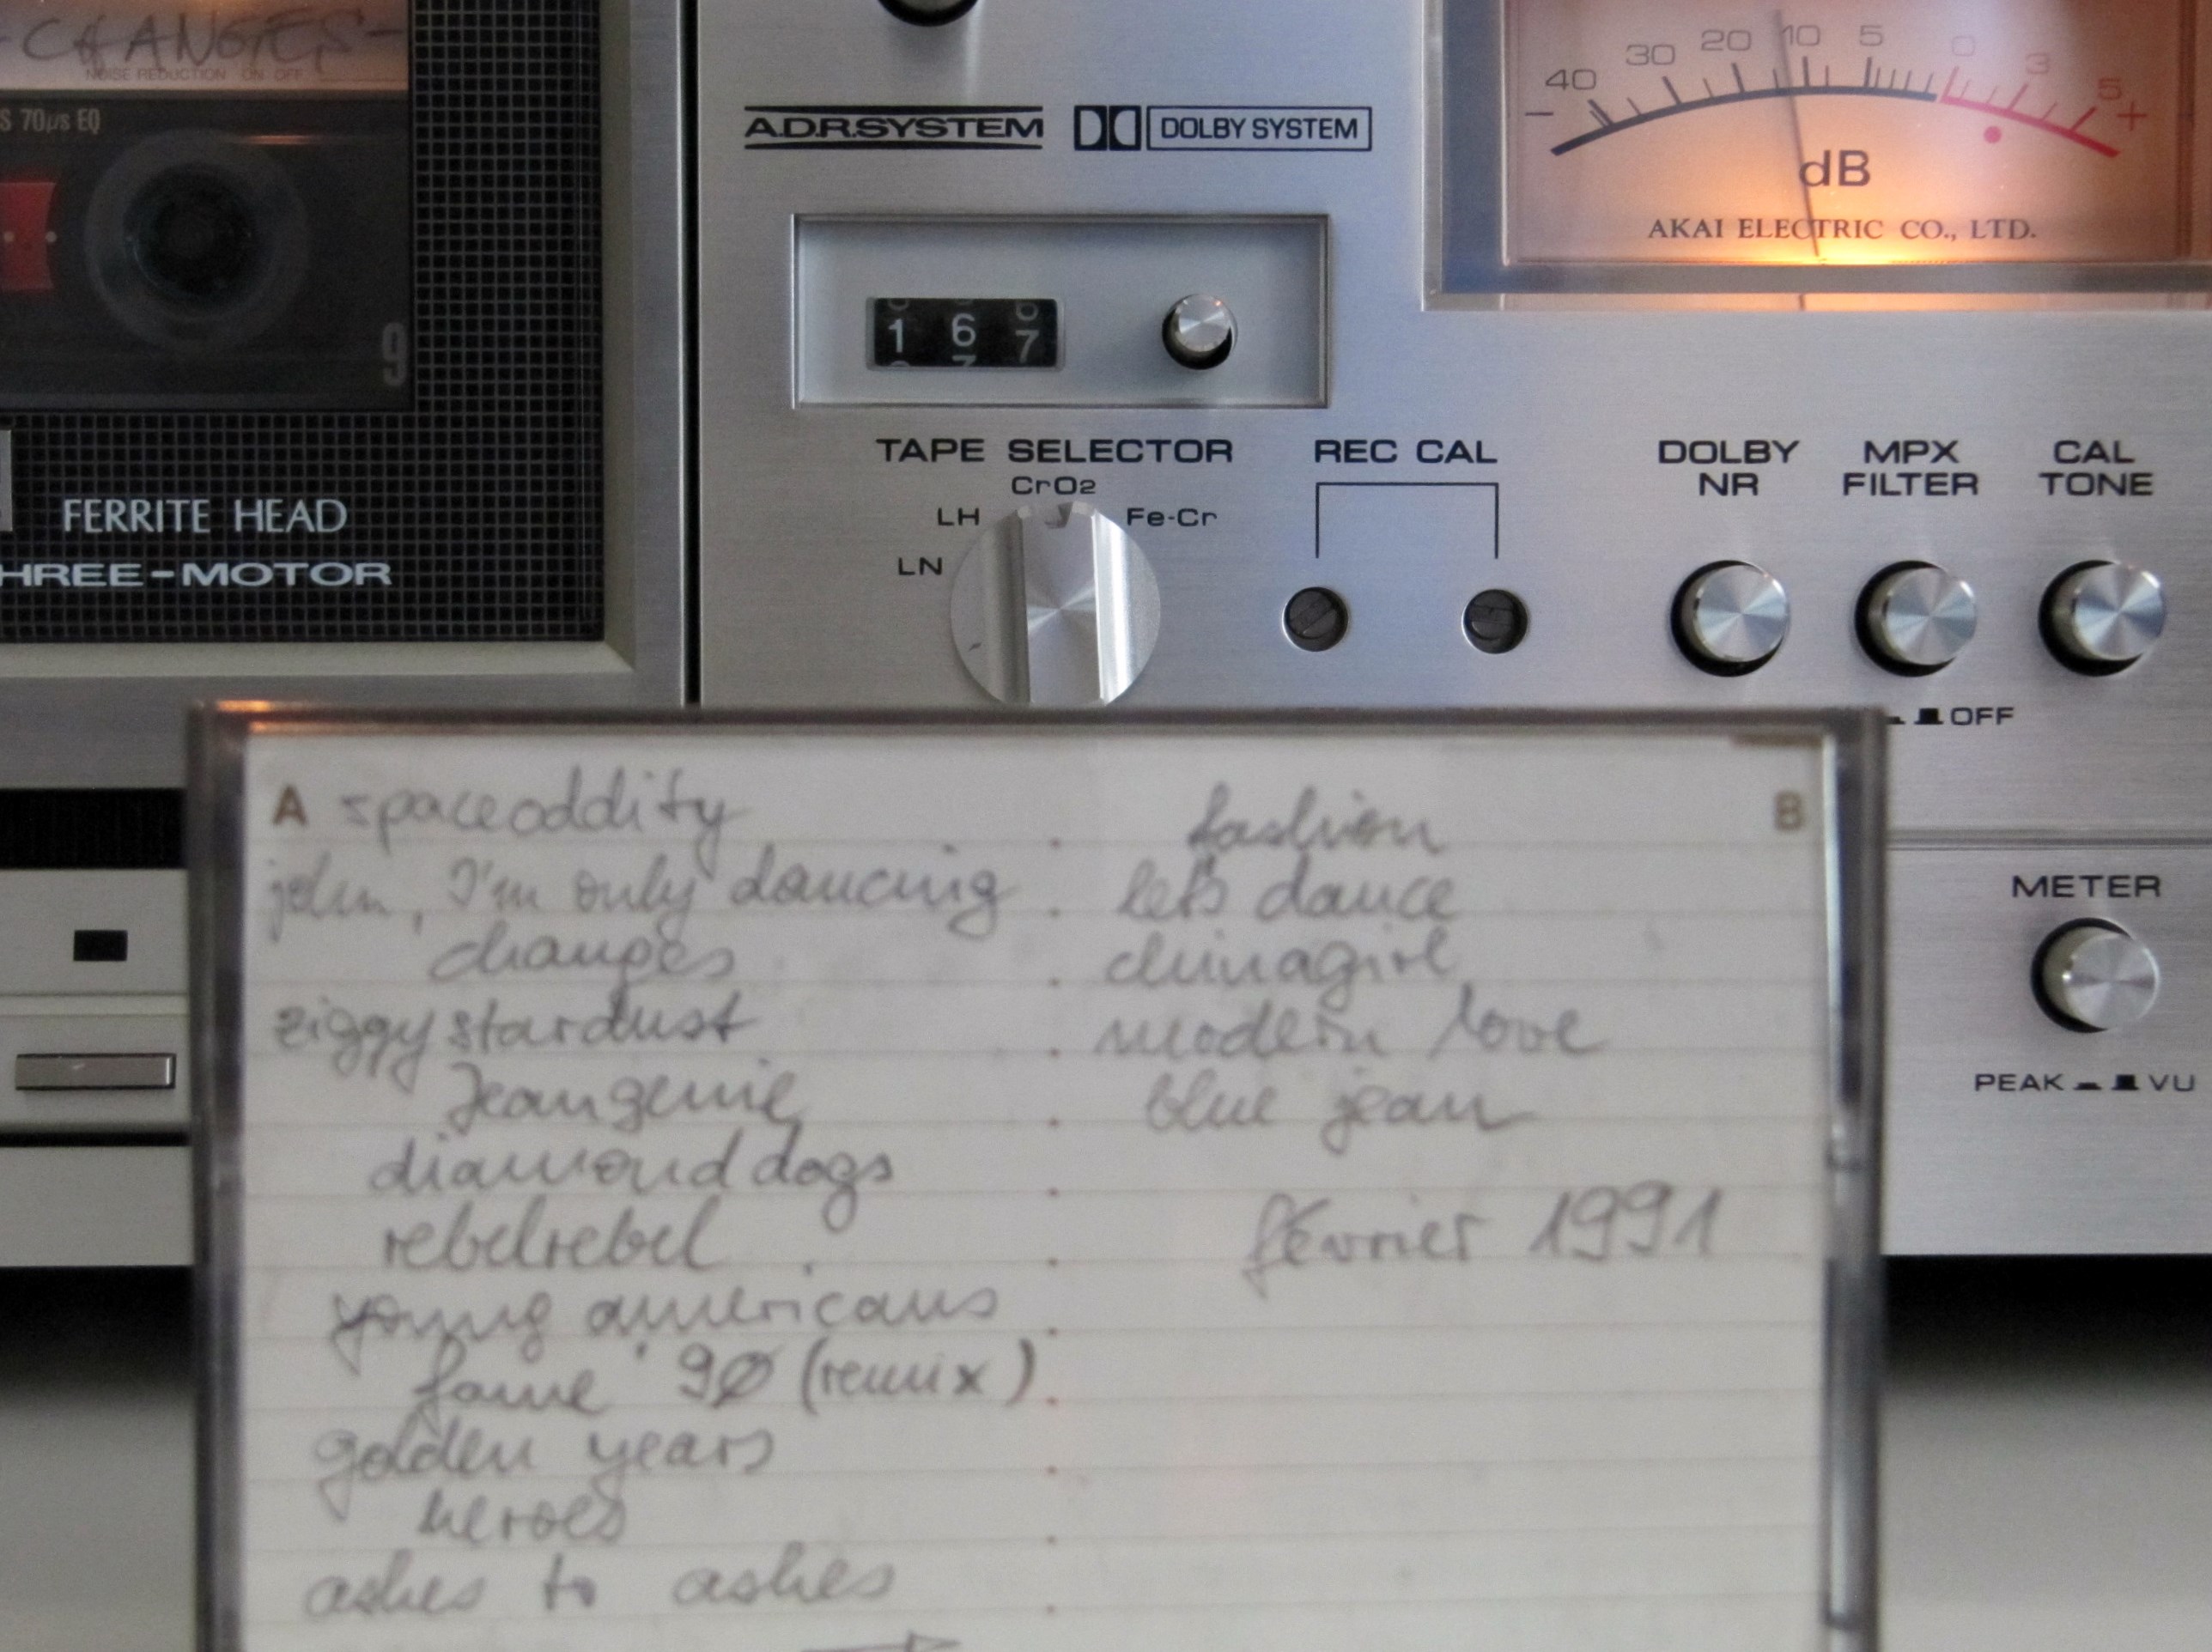 -CHANGES-
NOISE REDUCTION ON OFF
S 70µs EQ
9
FERRITE HEAD
HREE-MOTOR
A.D.R.SYSTEM
DOLBY SYSTEM
40 30 20 10 5 0 3 5
- +
dB
AKAI ELECTRIC CO., LTD.
1 6 7
TAPE SELECTOR
LN LH CrO2 Fe-Cr
REC CAL
DOLBY NR
MPX FILTER
CAL TONE
OFF
METER
PEAK VU
A spaceoddity
john, I'm only dancing
changes
ziggystardust
Jeangenie
diamonddogs
rebelrebel
young americans
fame '90 (remix)
golden years
heroes
ashes to ashes
B
fashion
let's dance
chinagirl
modern love
blue jean
février 1991